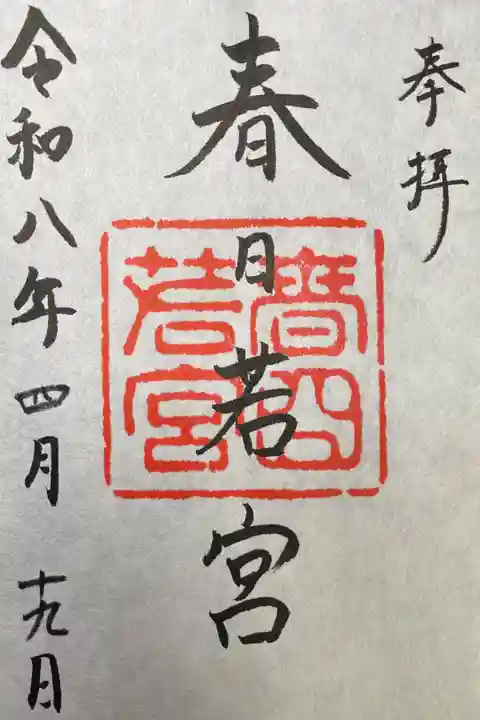 奉拝
春日若宮
令和八年四月十九月
若宮